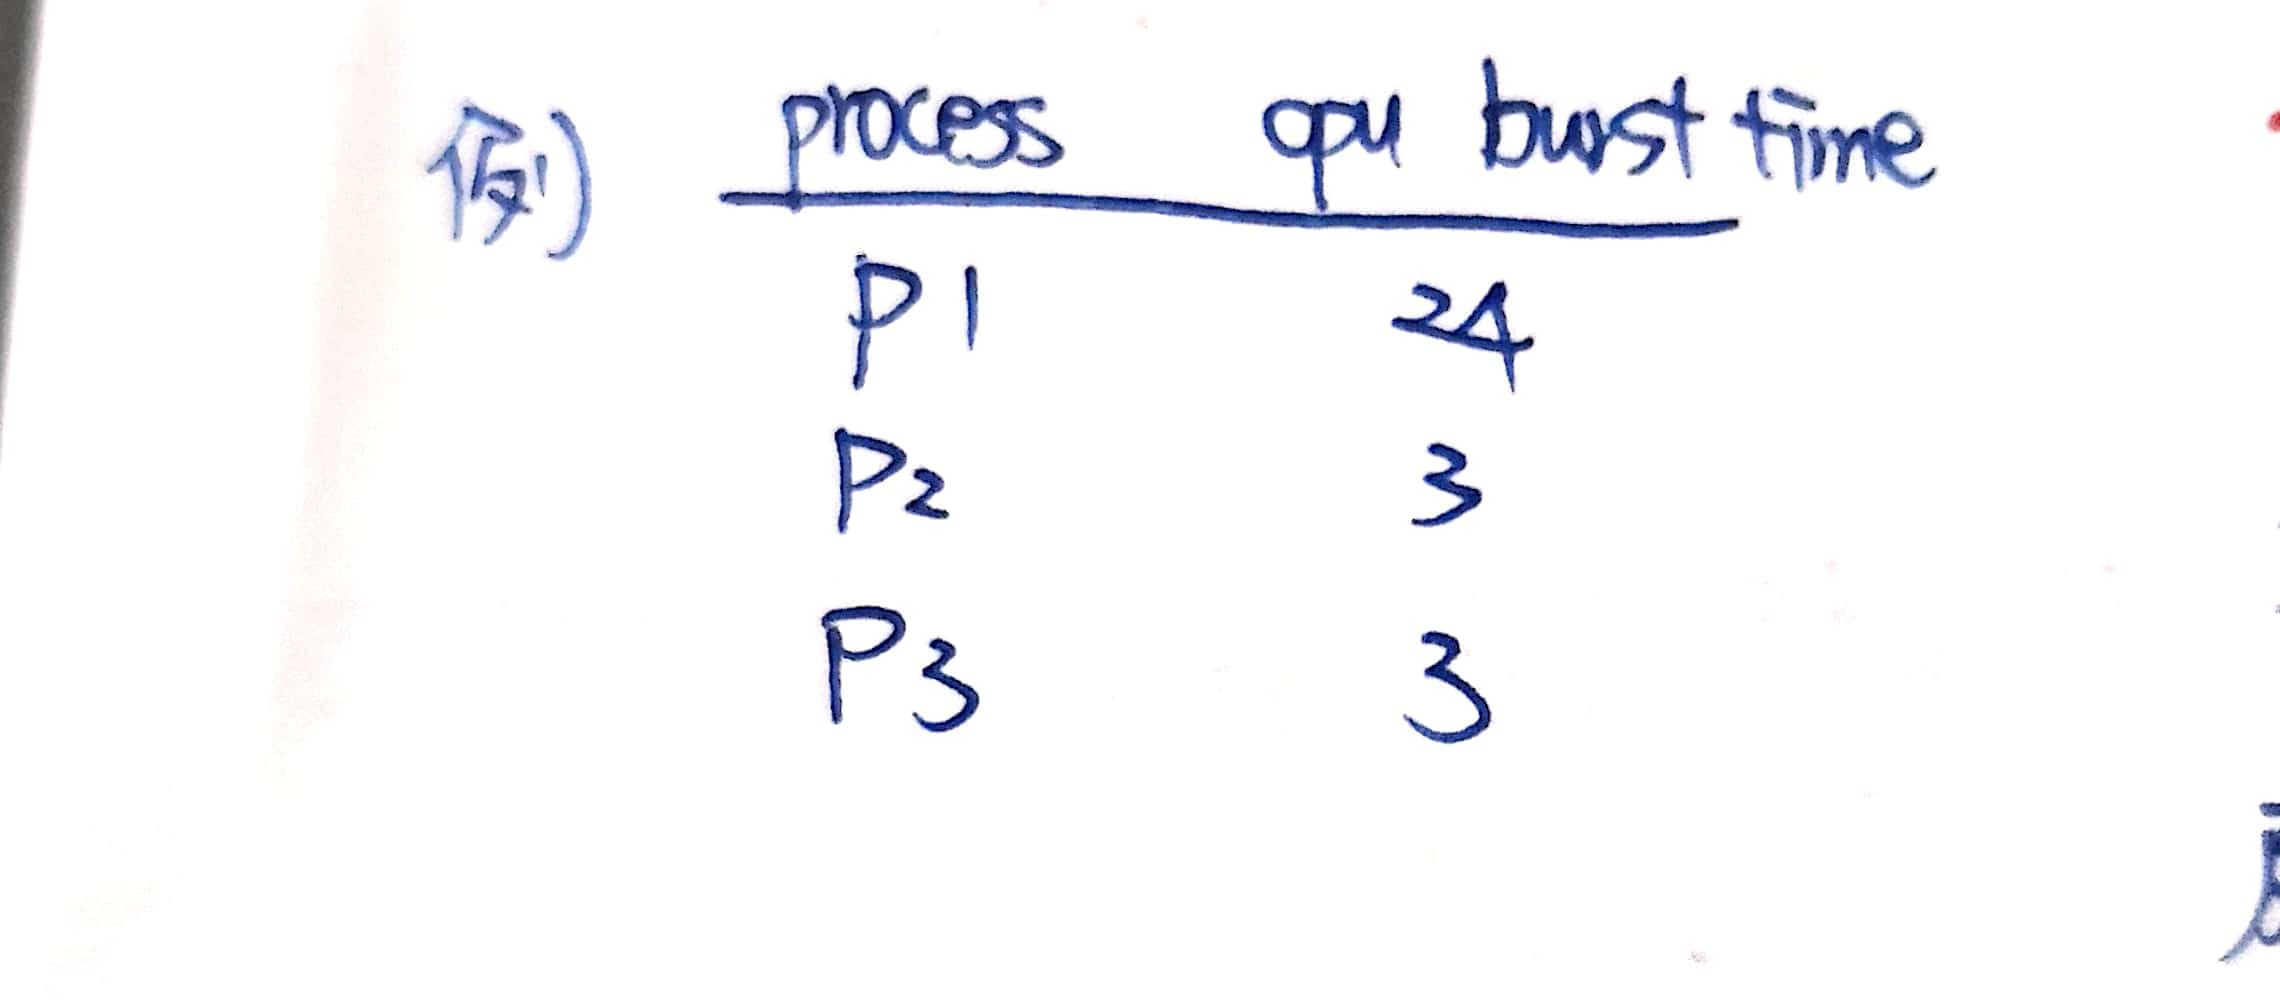 例) process cpu burst time
P1 24
P2 3
P3 3